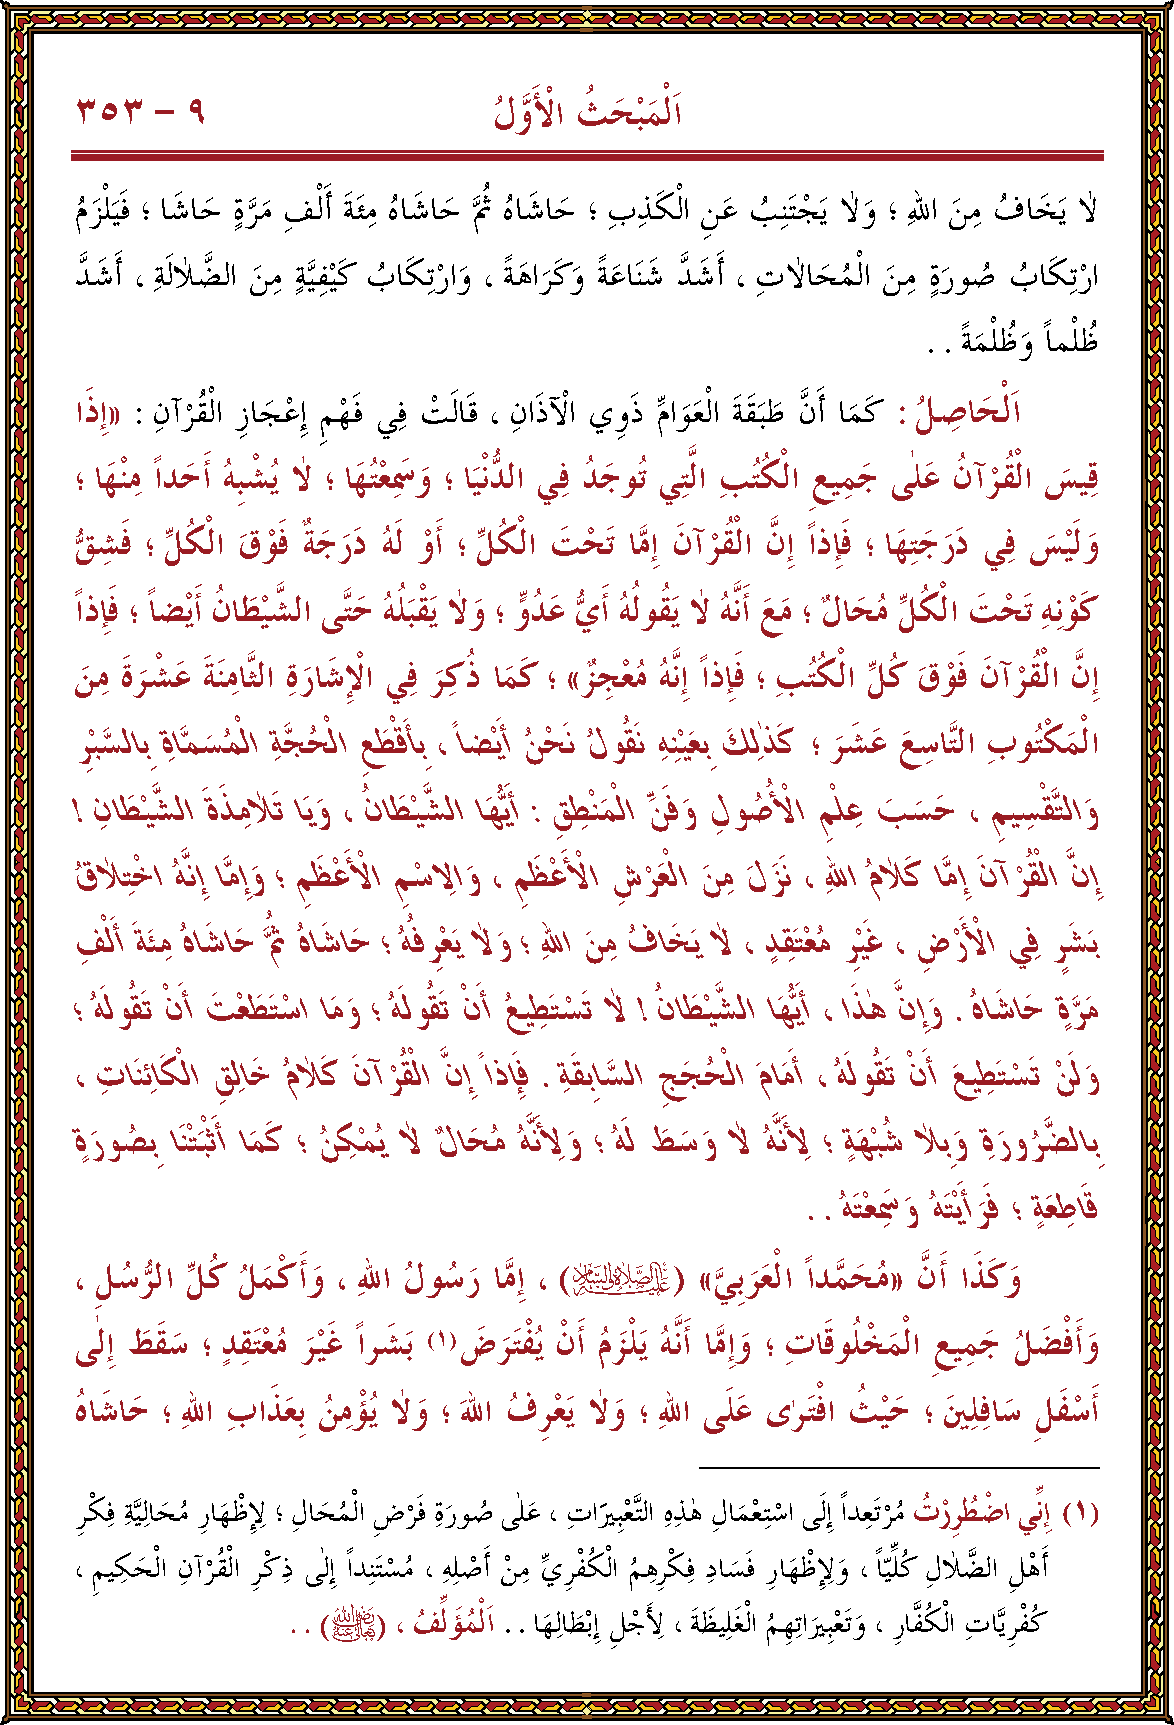 اَلْمَبْحَثُ الْأَوَّلُ ٩ – ٣٥٣
لَا يَخَافُ مِنَ اللهِ ؛ وَلَا يَجْتَنِبُ عَنِ الْكَذِبِ ؛ حَاشَاهُ ثُمَّ حَاشَاهُ مِئَةَ أَلْفِ مَرَّةٍ حَاشَا ؛ فَيَلْزَمُ
ارْتِكَابُ صُورَةٍ مِنَ الْمُحَالَاتِ ، أَشَدَّ شَنَاعَةً وَكَرَاهَةً ، وَارْتِكَابُ كَيْفِيَّةٍ مِنَ الضَّلَالَةِ ، أَشَدَّ
ظُلْماً وَظُلْمَةً . .
اَلْحَاصِلُ : كَمَا أَنَّ طَبَقَةَ الْعَوَامِّ ذَوِي الْآذَانِ ، قَالَتْ فِي فَهْمِ إِعْجَازِ الْقُرْآنِ : «إِذَا
قِيسَ الْقُرْآنُ عَلٰى جَمِيعِ الْكُتُبِ الَّتِي تُوجَدُ فِي الدُّنْيَا ؛ وَسَمِعْتُهَا ؛ لَا يُشْبِهُ أَحَداً مِنْهَا ؛
وَلَيْسَ فِي دَرَجَتِهَا ؛ فَإِذاً إِنَّ الْقُرْآنَ إِمَّا تَحْتَ الْكُلِّ ؛ أَوْ لَهُ دَرَجَةٌ فَوْقَ الْكُلِّ ؛ فَشِقُّ
كَوْنِهِ تَحْتَ الْكُلِّ مُحَالٌ ؛ مَعَ أَنَّهُ لَا يَقُولُهُ أَيُّ عَدُوٍّ ؛ وَلَا يَقْبَلُهُ حَتَّى الشَّيْطَانُ أَيْضاً ؛ فَإِذاً
إِنَّ الْقُرْآنَ فَوْقَ كُلِّ الْكُتُبِ ؛ فَإِذاً إِنَّهُ مُعْجِزٌ» ؛ كَمَا ذُكِرَ فِي الْإِشَارَةِ الثَّامِنَةَ عَشْرَةَ مِنَ
الْمَكْتُوبِ التَّاسِعَ عَشَرَ ؛ كَذٰلِكَ بِعَيْنِهِ نَقُولُ نَحْنُ أَيْضاً ، بِأَقْطَعِ الْحُجَّةِ الْمُسَمَّاةِ بِالسَّبْرِ
وَالتَّقْسِيمِ ، حَسَبَ عِلْمِ الْأُصُولِ وَفَنِّ الْمَنْطِقِ : أَيُّهَا الشَّيْطَانُ ، وَيَا تَلَامِذَةَ الشَّيْطَانِ !
إِنَّ الْقُرْآنَ إِمَّا كَلَامُ اللهِ ، نَزَلَ مِنَ الْعَرْشِ الْأَعْظَمِ ، وَالِاسْمِ الْأَعْظَمِ ؛ وَإِمَّا إِنَّهُ اخْتِلَاقُ
بَشَرٍ فِي الْأَرْضِ ، غَيْرِ مُعْتَقِدٍ ، لَا يَخَافُ مِنَ اللهِ ؛ وَلَا يَعْرِفُهُ ؛ حَاشَاهُ ثُمَّ حَاشَاهُ مِئَةَ أَلْفِ
مَرَّةٍ حَاشَاهُ . وَإِنَّ هٰذَا ، أَيُّهَا الشَّيْطَانُ ! لَا تَسْتَطِيعُ أَنْ تَقُولَهُ ؛ وَمَا اسْتَطَعْتَ أَنْ تَقُولَهُ ؛
وَلَنْ تَسْتَطِيعَ أَنْ تَقُولَهُ ، أَمَامَ الْحُجَجِ السَّابِقَةِ . فَإِذاً إِنَّ الْقُرْآنَ كَلَامُ خَالِقِ الْكَائِنَاتِ ،
بِالضَّرُورَةِ وَبِلَا شُبْهَةٍ ؛ لِأَنَّهُ لَا وَسَطَ لَهُ ؛ وَلِأَنَّهُ مُحَالٌ لَا يُمْكِنُ ؛ كَمَا أَثْبَتْنَا بِصُورَةٍ
قَاطِعَةٍ ؛ فَرَأَيْتَهُ وَسَمِعْتَهُ . .
وَكَذَا أَنَّ «مُحَمَّداً الْعَرَبِيَّ» (عَلَيْهِ الصَّلَاةُ وَالسَّلَامُ) ، إِمَّا رَسُولُ اللهِ ، وَأَكْمَلُ كُلِّ الرُّسُلِ ،
وَأَفْضَلُ جَمِيعِ الْمَخْلُوقَاتِ ؛ وَإِمَّا أَنَّهُ يَلْزَمُ أَنْ يُفْتَرَضَ(١) بَشَراً غَيْرَ مُعْتَقِدٍ ؛ سَقَطَ إِلٰى
أَسْفَلِ سَافِلِينَ ؛ حَيْثُ افْتَرٰى عَلَى اللهِ ؛ وَلَا يَعْرِفُ اللهَ ؛ وَلَا يُؤْمِنُ بِعَذَابِ اللهِ ؛ حَاشَاهُ
(١) إِنِّي اضْطُرِرْتُ مُرْتَعِداً إِلَى اسْتِعْمَالِ هٰذِهِ التَّعْبِيرَاتِ ، عَلٰى صُورَةِ فَرْضِ الْمُحَالِ ؛ لِإِظْهَارِ مُحَالِيَّةِ فِكْرِ
أَهْلِ الضَّلَالِ كُلِّيّاً ، وَلِإِظْهَارِ فَسَادِ فِكْرِهِمُ الْكُفْرِيِّ مِنْ أَصْلِهِ ، مُسْتَنِداً إِلٰى ذِكْرِ الْقُرْآنِ الْحَكِيمِ ،
كُفْرِيَّاتِ الْكُفَّارِ ، وَتَعْبِيرَاتِهِمُ الْغَلِيظَةَ ، لِأَجْلِ إِبْطَالِهَا . . اَلْمُؤَلِّفُ ، (رَضِيَ اللهُ تَعَالَى عَنْهُ) . .